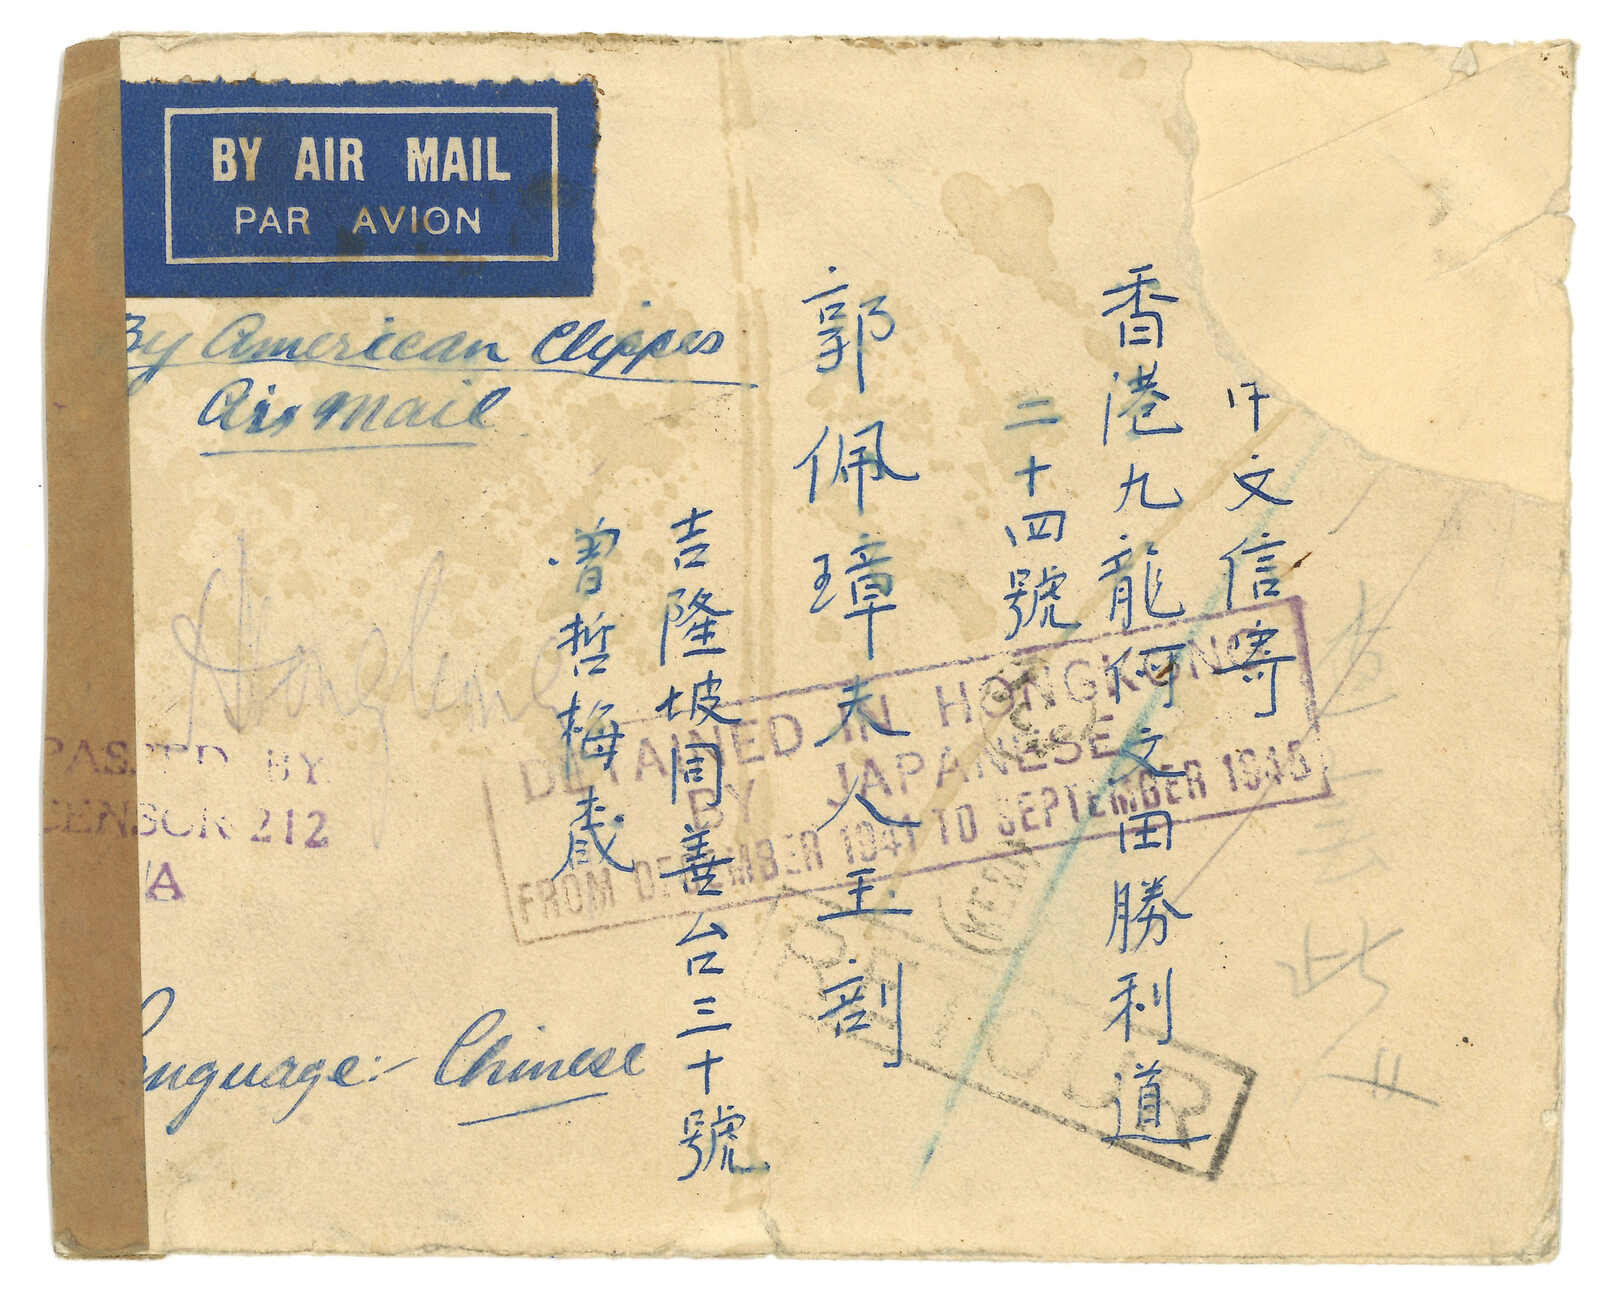 BY AIR MAIL
PAR AVION
By American Clipper
Air Mail
中文信寄
香港九龍何文田勝利道
二十四號
郭佩璋夫人玉剖
吉隆坡同善台三十號
曾哲梅歳
Hongkong
PASSED BY
CENSOR 212
A
DETAINED IN HONGKONG
BY JAPANESE
FROM DECEMBER 1941 TO SEPTEMBER 1945
RETOUR
Language:- Chinese